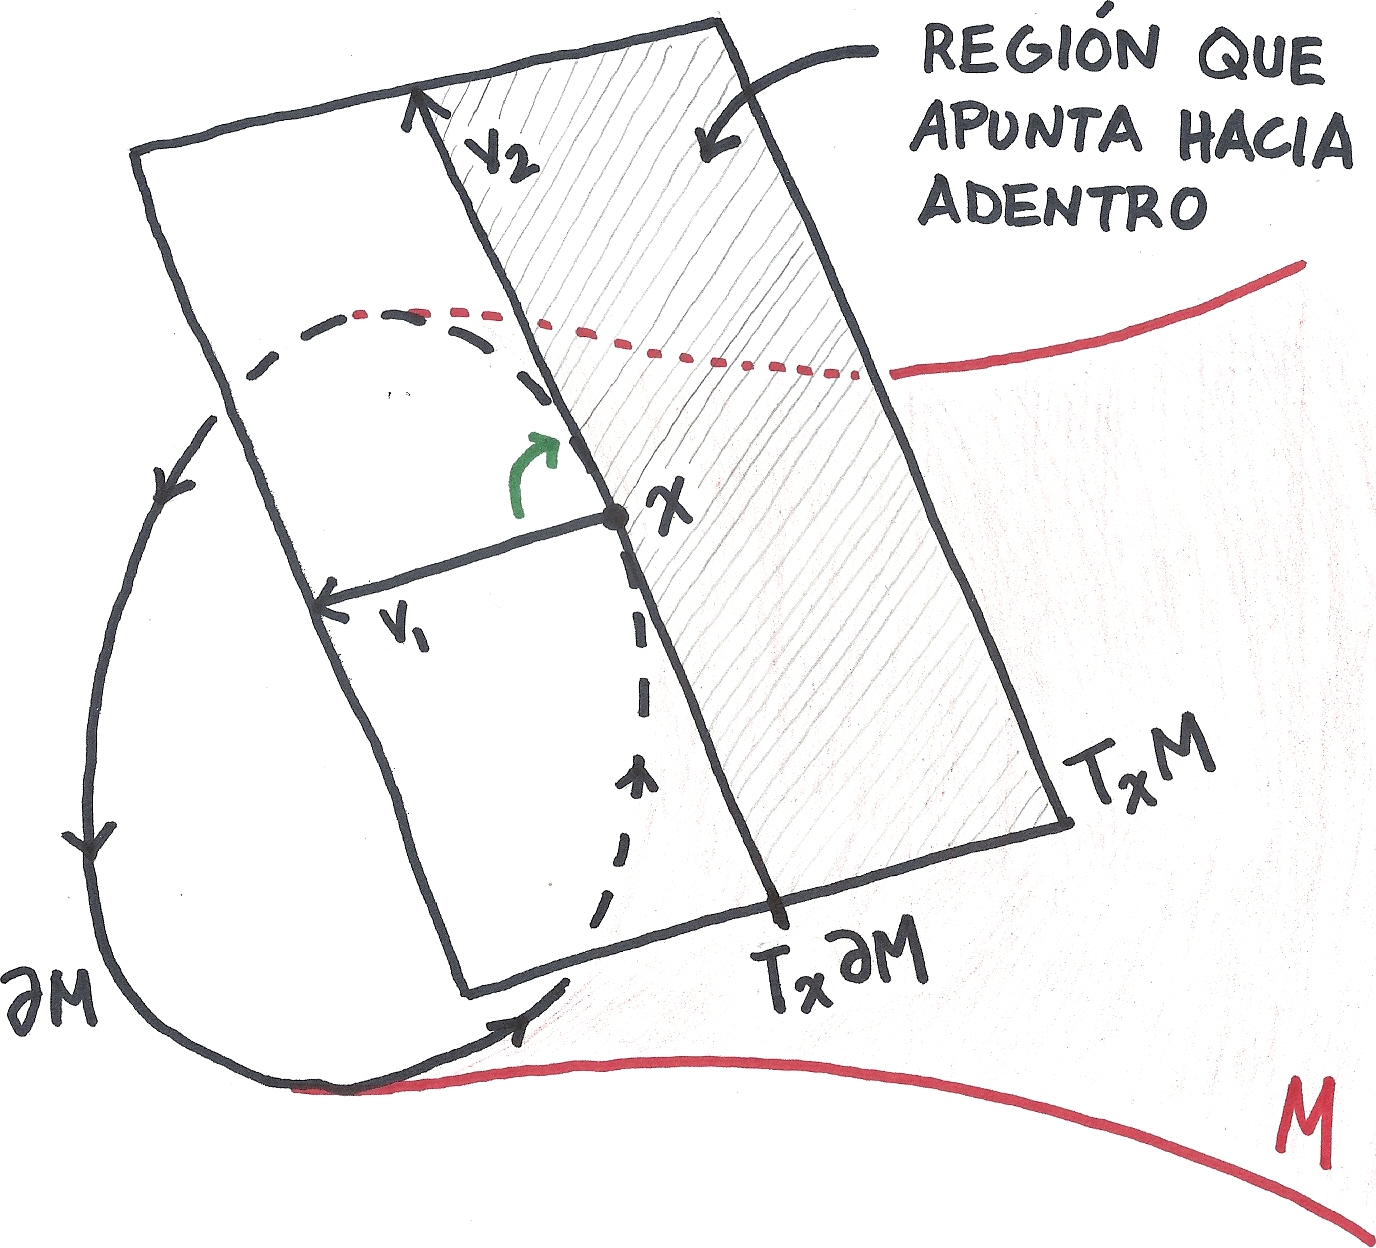 REGIÓN QUE
APUNTA HACIA
ADENTRO
V2
x
V1
TxM
Tx∂M
∂M
M